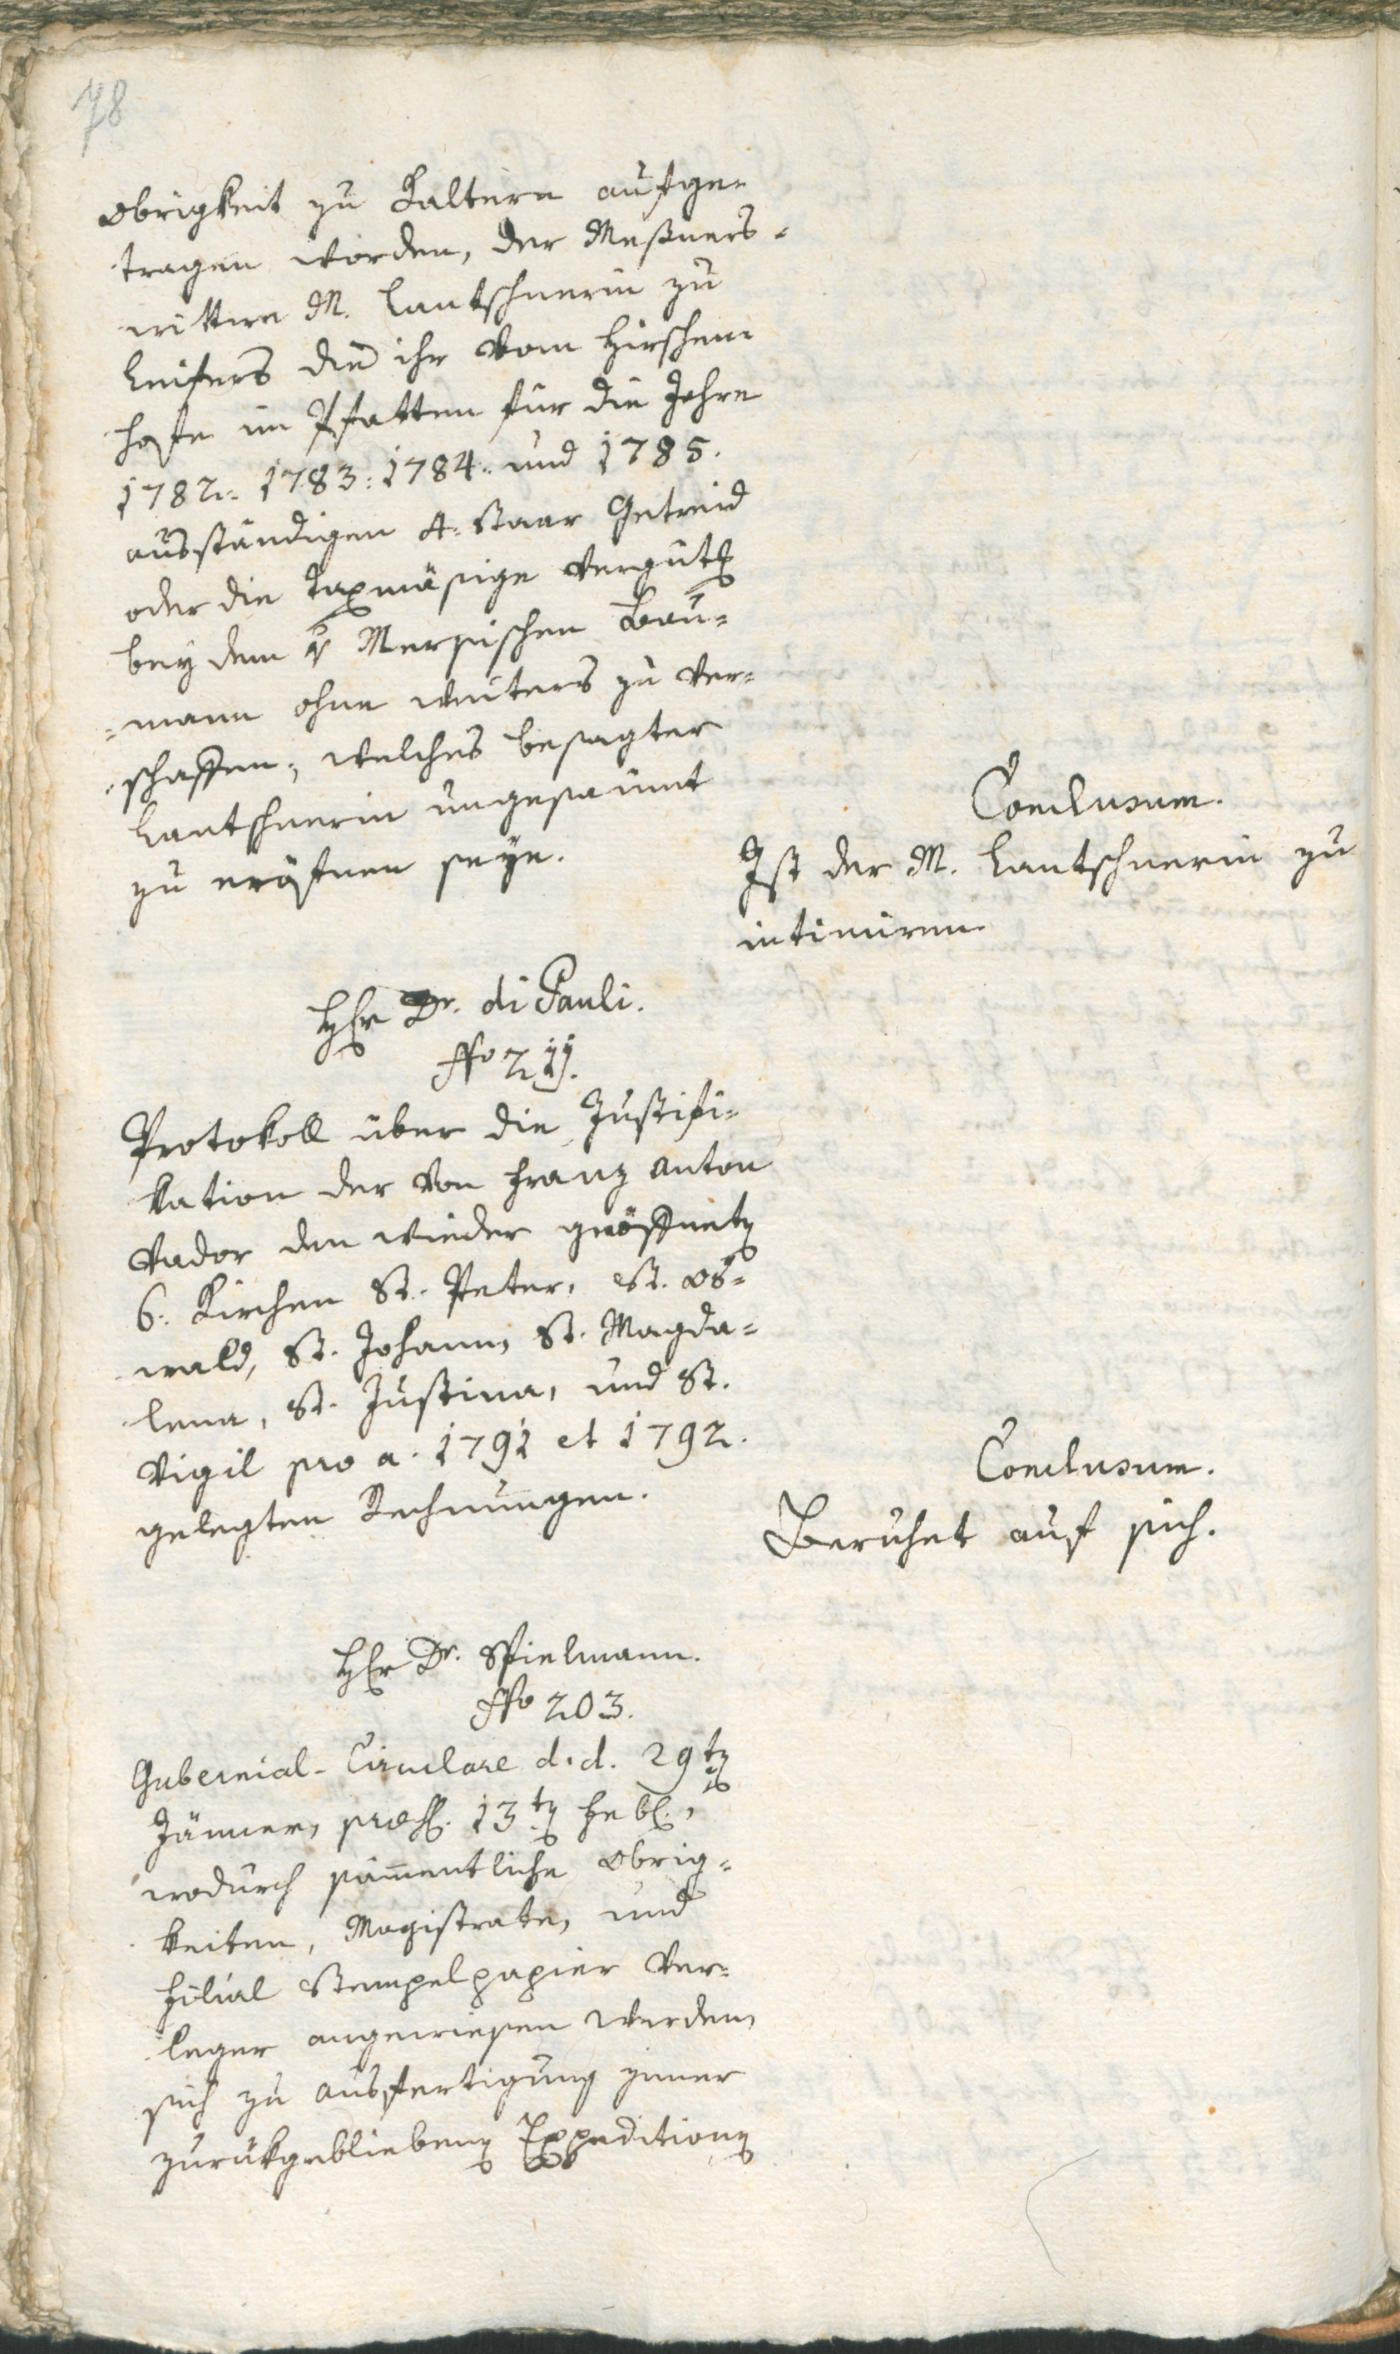 78
Obrigkeit zu Kaltern aufge-
tragen worden, der Meßners-
wittwe M. Lantschnerin zu
Leifers die ihr vom Hirschem
hofe im Pfatten für die Jahre
1782: 1783: 1784: und 1785.
ausständigen 4. Staar Getreid
oder die Taxmäsige Vergüt
bey dem v Mersischen Bau=
=mann ohne weiters zu ver=
schaffen, welches besagter
Lantschnerin ungesaumt
zu eröfnen seye.
Conclusum.
Ist der M. Lantschnerin zu
intimiren
Hr Dr. di Pauli.
No 211.
Protokoll über die Justifi=
kation der von Franz Anton
Vador den wieder geöffnet
6. Kirchen St. Peter, St. Os=
wald, St. Johann, St. Magda=
lena, St. Justina, und St.
Vigil pro a. 1791 et 1792.
gelegten Rechnungen.
Conclusum.
Beruhet auf sich.
Hr Dr. Spielmann.
No 203.
Gubernial-Circulare d. d. 29ten
Jänner, præs. 13ten Febr.,
wodurch sam̄entliche Obrig=
keiten, Magistrate, und
Filial Stempelpapier Ver=
leger angewiesen werden,
sich zu Ausfertigung jener
zurükgebliebenen Expeditionen